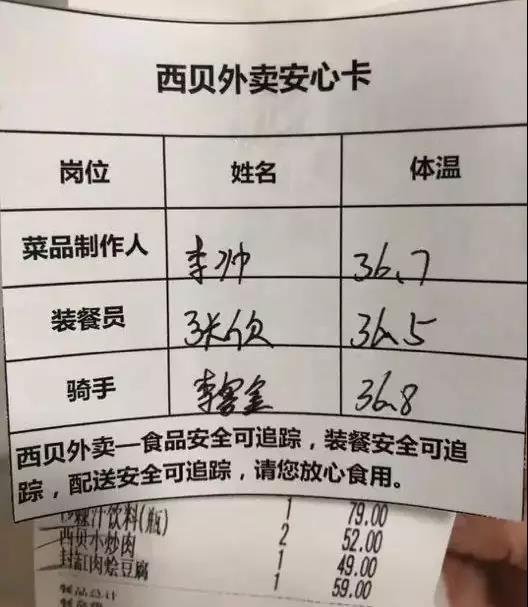 西贝外卖安心卡
岗位 姓名 体温
菜品制作人 李帅 36.7
装餐员 张欣 36.5
骑手 李 36.8
西贝外卖—食品安全可追踪，装餐安全可追
踪，配送安全可追踪，请您放心食用。
汁饮料(瓶) 1 79.00
西贝小炒肉 2 52.00
封缸肉烩豆腐 1 49.00
餐品总计 1 59.00